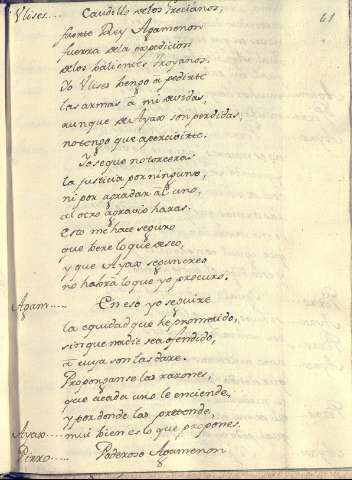 61
Ulises.... Caudillo de los Grecianos,
fuerte Rey Agamenon
fuerza de la expedicion
de los balientes Troyanos.
Yo Ulises bengo a pedirte
las armas â mi devidas,
aunque de Ayax son perdidas,
no tengo que apercivirte.
Yo se que no torceras
la justicia por ninguno,
ni por agradar al uno,
al otro agravio haras.
Esto me hace seguro
que bere lo que deseo,
y que Ayax segun creo
no habra lo que yo procuro.
Agam..... En eso yo seguire
la equidad que he prometido,
sin que nadie sea ofendido,
â cuya son las dare.
Proponganse las razones,
que a cada uno le enciende,
y por donde las pretende,
Ayax.... mui bien es lo que propones.
Pirro.... Poderoso Agamenon